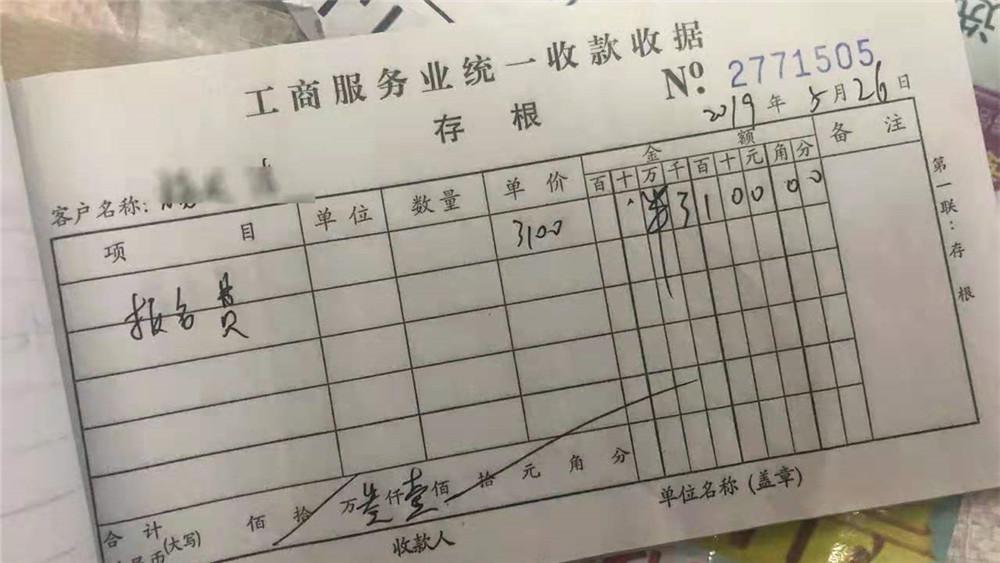 工商服务业统一收款收据
存根
№ 2771505
2019年5月26日
客户名称:
项目 单位 数量 单价 金额 备注
百十万千百十元角分
3100 3100 00
报名费
合计 (大写) 佰 拾 万 仟壹佰 拾 元 角 分
收款人 单位名称(盖章)
第一联:存根